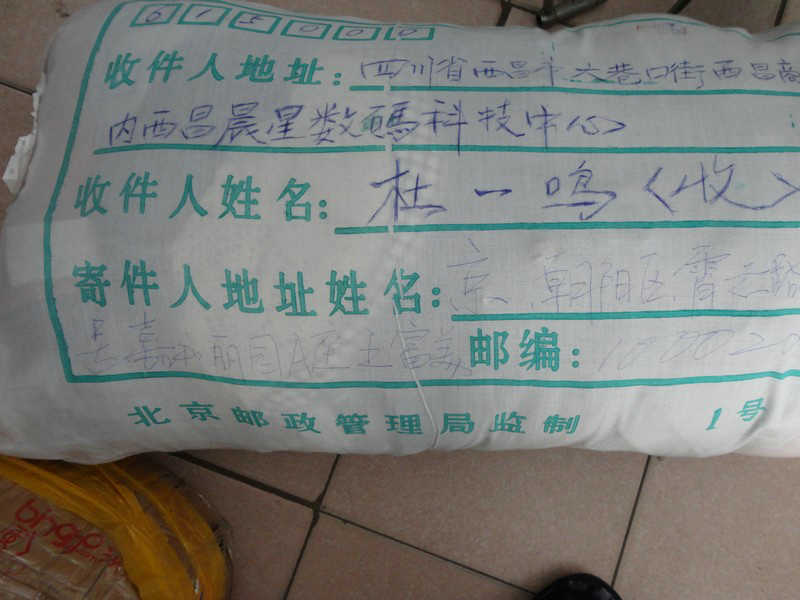 615000
收件人地址：四川省西昌市大巷口街西昌商
内西昌晨星数碼科技中心
收件人姓名：杜一鸣〈收〉
寄件人地址姓名：京朝阳区霄云路
号嘉 丽园A座王富美
邮编：10002
北京邮政管理局监制 1号